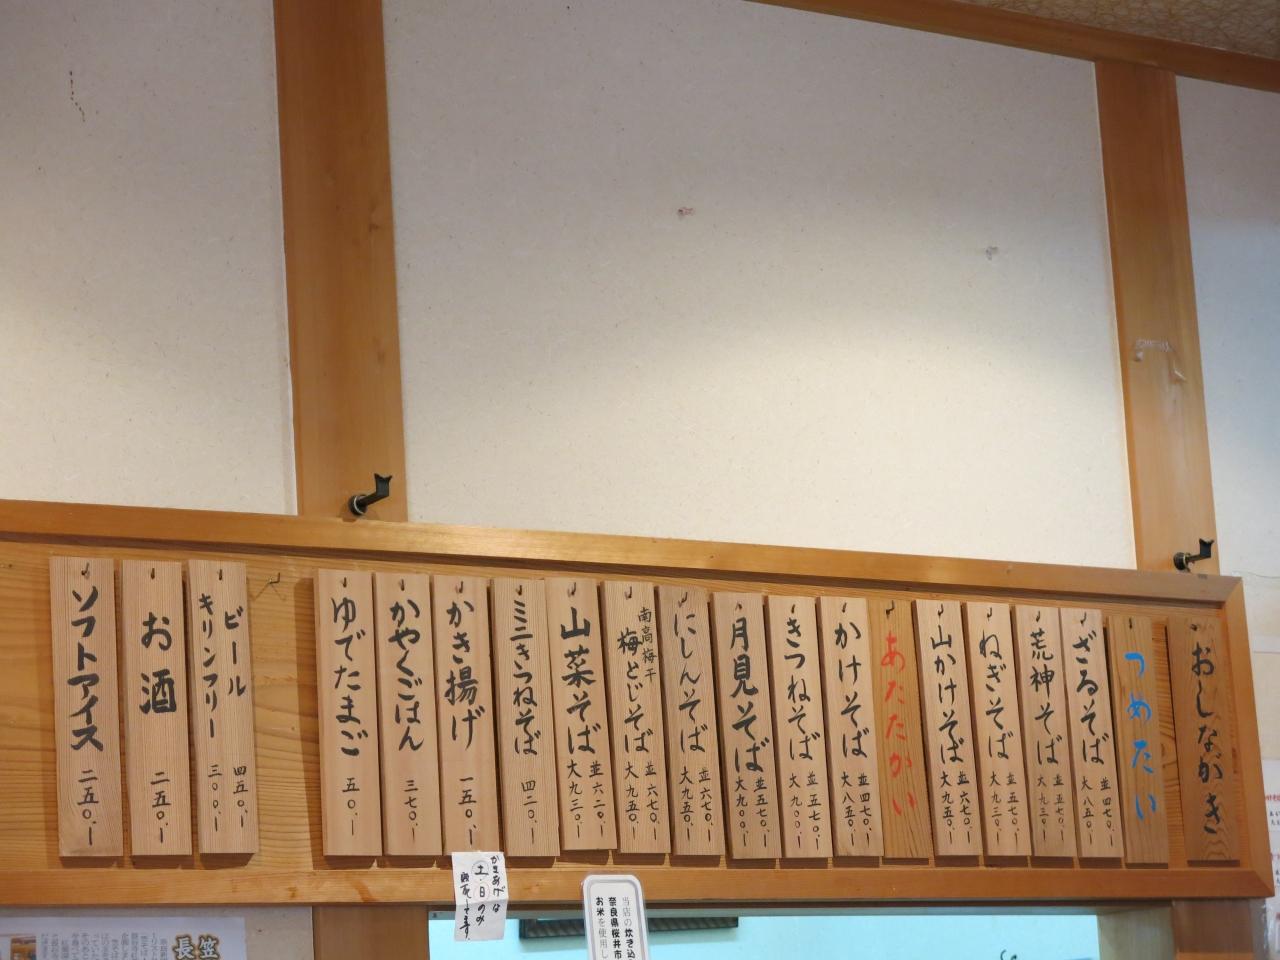 おしながき
つめたい
ざるそば 並四七〇.ー 大八五〇.ー
荒神そば
ねぎそば 並五七〇.ー 大九三〇.ー
山かけそば 並六七〇.ー 大九五〇.ー
あたたかい
かけそば 並四七〇.ー 大八五〇.ー
きつねそば 並五七〇.ー 大九〇〇.ー
月見そば 並五七〇.ー 大九〇〇.ー
にしんそば 並六七〇.ー 大九五〇.ー
南高梅干
梅とじそば 並六七〇.ー 大九五〇.ー
山菜そば 並六二〇.ー 大九三〇.ー
ミニきつねそば 四二〇.ー
かき揚げ 一五〇.ー
かやくごはん 三七〇.ー
ゆでたまご 五〇.ー
ビール 四五〇.ー
キリンフリー 三〇〇.ー
お酒 二五〇.ー
ソフトアイス 二五〇.ー
かきあげは
土・日のみ
販売してます。
当店の炊き込
奈良県桜井市
お米を使用し
笠
長